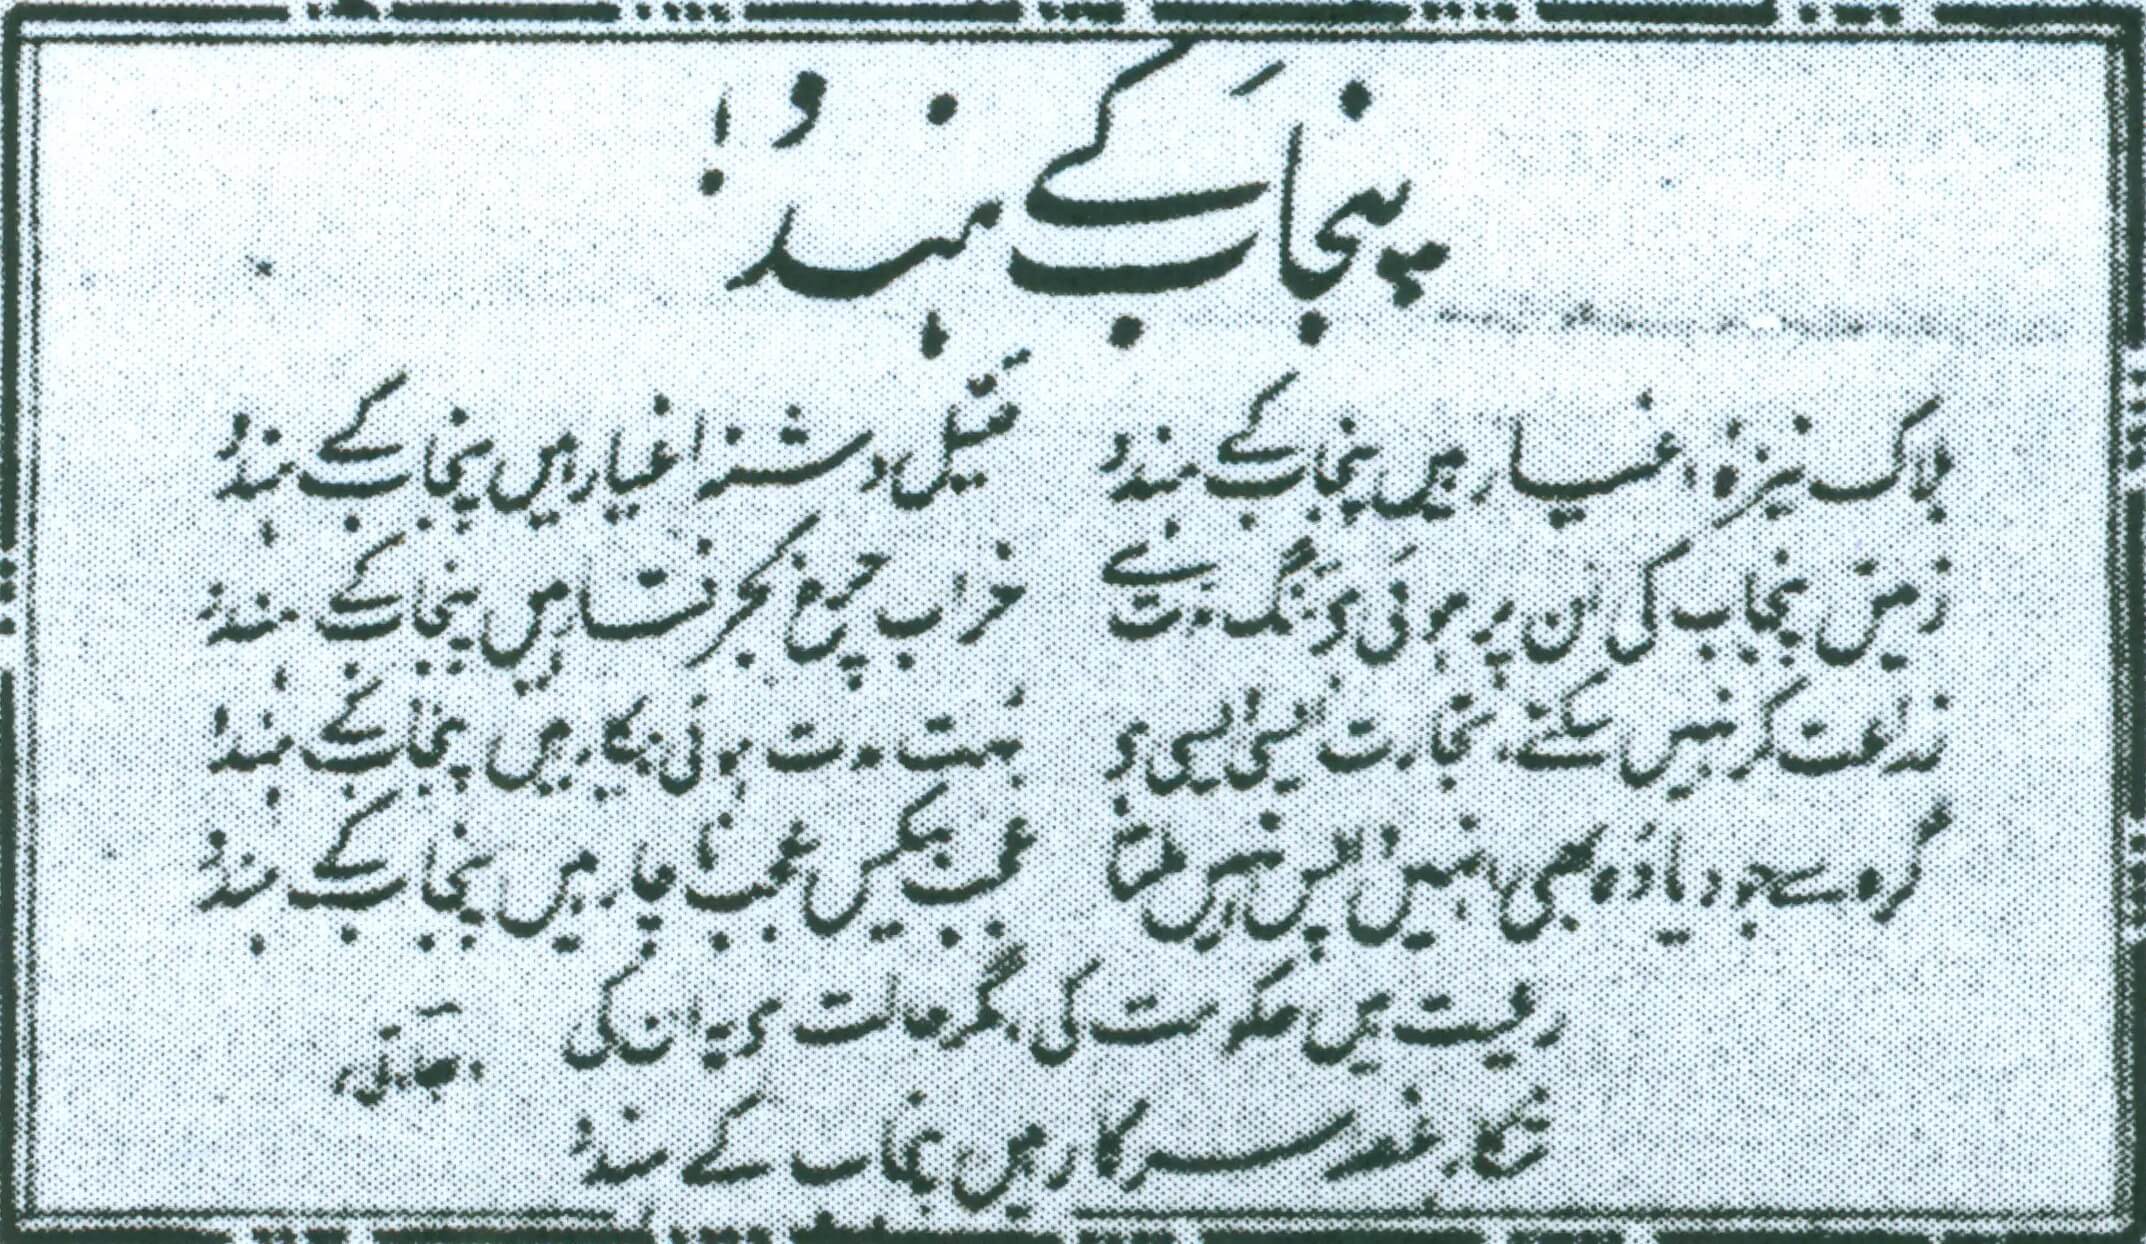 پنجاب کے ہندو!
ہلاک نیزۂ اغیار ہیں پنجاب کے ہندو
قتیل دشنۂ اغیار ہیں پنجاب کے ہندو
زمین پنجاب کی ان پر ہوئی ہے تنگ مدت سے
خراب چرخ کجرفتار ہیں پنجاب کے ہندو
زراعت کر نہیں سکتے، تجارت ایسی ویسی ہے
بہت مدت ہوئی بیکار ہیں پنجاب کے ہندو
گرہ سے جو دیا وہ بھی انہیں واپس نہیں ملتا
عجب بیکس عجب ناچار ہیں پنجاب کے ہندو
رعیت ہیں حکومت کی، مگر حالت ہے یہ ان کی
شکار غصۂ سرکار ہیں پنجاب کے ہندو